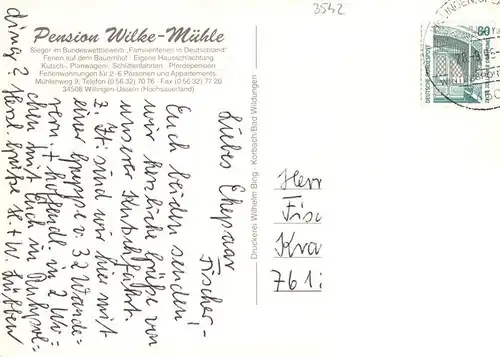 3542
Pension Wilke-Mühle
Sieger im Bundeswettbewerb „Familienferien in Deutschland"
Ferien auf dem Bauernhof · Eigene Hausschlachtung
Kutsch-, Planwagen-, Schlittenfahrten · Pferdepension
Ferienwohnungen für 2-6 Personen und Appartements
Mühlenweg 9, Telefon (0 56 32) 70 76 Fax (0 56 32) 77 20
34508 Willingen-Usseln (Hochsauerland)
Liebes Ehepaar
Fischer -
Euch beiden senden
wir herzliche Grüße von
unserer Kutschfahrt.
Z. Zt. sind wir hier mit
einer Gruppe v. 32 Wande=
rern. + hoffende in 2 Wo=
chen mit Euch in Ruhpol=
ding? Herzl. Grüße H. + W.
Druckerei Wilhelm Bing · Korbach/Bad Wildungen
80
DEUTSCHE BUNDESPOST
Herr
Fisc
Kra
761